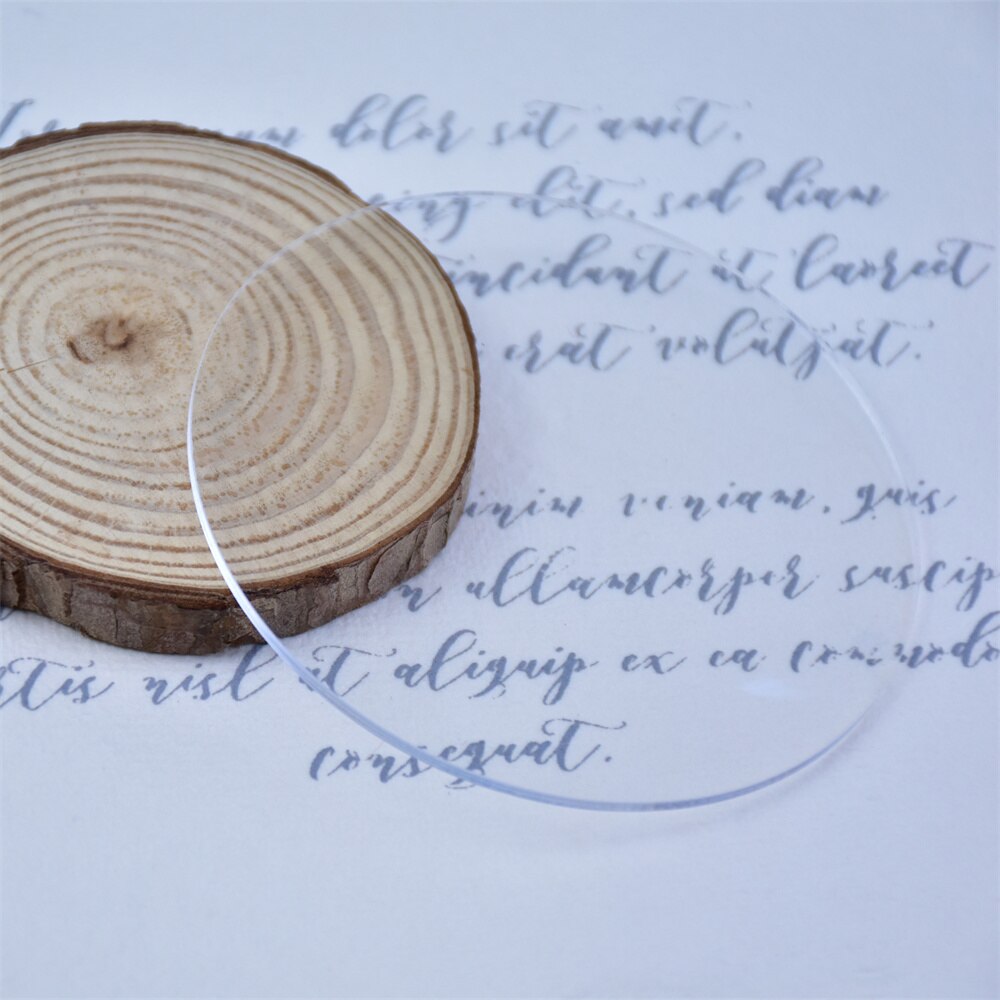 dolor sit amet,
elit, sed diam
incidunt ut laoreet
erat volutpat.
inim veniam, quis
n ullamcorper suscip
rtis nisl ut aliquip ex ea commodo
consequat.